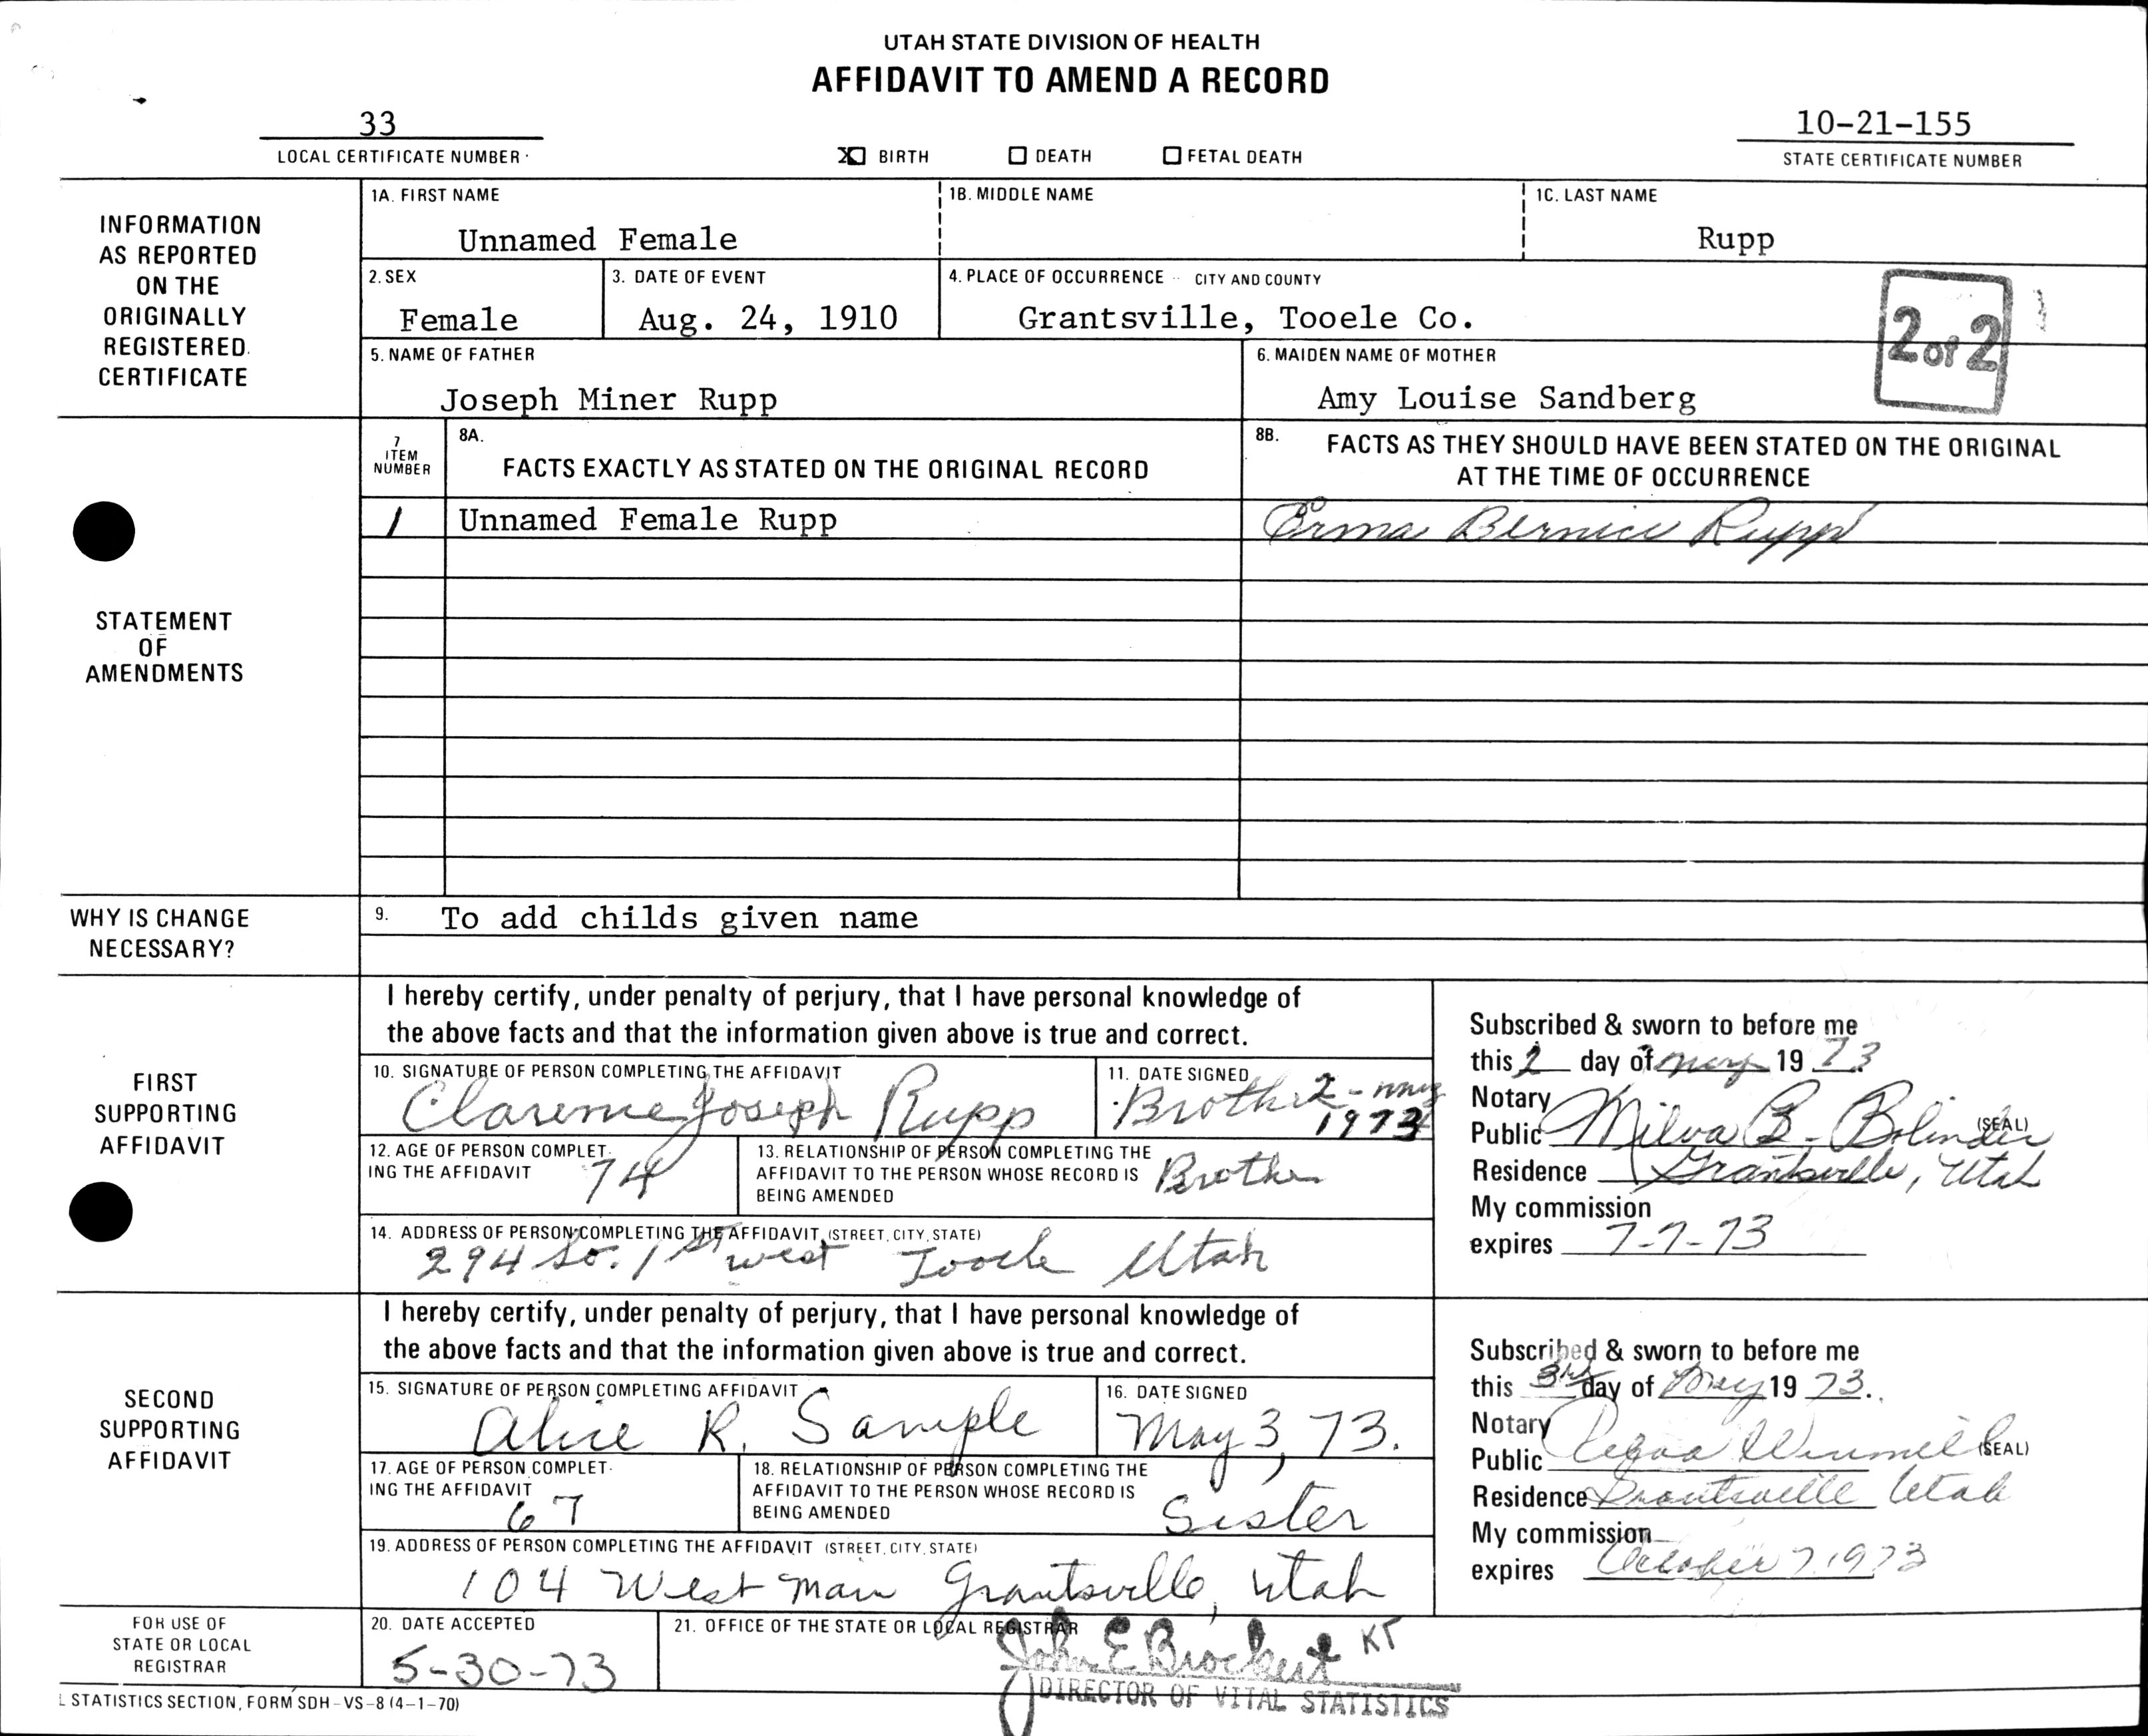 UTAH STATE DIVISION OF HEALTH
AFFIDAVIT TO AMEND A RECORD
33
LOCAL CERTIFICATE NUMBER
X BIRTH DEATH FETAL DEATH
10-21-155
STATE CERTIFICATE NUMBER
INFORMATION
AS REPORTED
ON THE
ORIGINALLY
REGISTERED
CERTIFICATE
1A. FIRST NAME
Unnamed Female
1B. MIDDLE NAME
1C. LAST NAME
Rupp
2. SEX
Female
3. DATE OF EVENT
Aug. 24, 1910
4. PLACE OF OCCURRENCE CITY AND COUNTY
Grantsville, Tooele Co.
2 of 2
5. NAME OF FATHER
Joseph Miner Rupp
6. MAIDEN NAME OF MOTHER
Amy Louise Sandberg
STATEMENT
OF
AMENDMENTS
7
ITEM
NUMBER
8A.
FACTS EXACTLY AS STATED ON THE ORIGINAL RECORD
8B.
FACTS AS THEY SHOULD HAVE BEEN STATED ON THE ORIGINAL
AT THE TIME OF OCCURRENCE
1
Unnamed Female Rupp
Erma Bernice Rupp
WHY IS CHANGE
NECESSARY?
9. To add childs given name
FIRST
SUPPORTING
AFFIDAVIT
I hereby certify, under penalty of perjury, that I have personal knowledge of
the above facts and that the information given above is true and correct.
10. SIGNATURE OF PERSON COMPLETING THE AFFIDAVIT
Clarence Joseph Rupp
11. DATE SIGNED
Brother 2-may
1973
12. AGE OF PERSON COMPLET-
ING THE AFFIDAVIT
74
13. RELATIONSHIP OF PERSON COMPLETING THE
AFFIDAVIT TO THE PERSON WHOSE RECORD IS
BEING AMENDED
Brother
14. ADDRESS OF PERSON COMPLETING THE AFFIDAVIT (STREET, CITY, STATE)
294 So. 1st west Tooele Utah
Subscribed & sworn to before me
this 2 day of may 19 73
Notary
Public Milva B. Bolinder (SEAL)
Residence Grantsville, Utah
My commission
expires 7-7-73
SECOND
SUPPORTING
AFFIDAVIT
I hereby certify, under penalty of perjury, that I have personal knowledge of
the above facts and that the information given above is true and correct.
15. SIGNATURE OF PERSON COMPLETING AFFIDAVIT
Alice R. Sample
16. DATE SIGNED
May 3, 73.
17. AGE OF PERSON COMPLET-
ING THE AFFIDAVIT
67
18. RELATIONSHIP OF PERSON COMPLETING THE
AFFIDAVIT TO THE PERSON WHOSE RECORD IS
BEING AMENDED
Sister
19. ADDRESS OF PERSON COMPLETING THE AFFIDAVIT (STREET, CITY, STATE)
104 West Main Grantsville, Utah
Subscribed & sworn to before me
this 3rd day of May 19 73.
Notary
Public (SEAL)
Residence Grantsville Utah
My commission
expires October 7 1973
FOR USE OF
STATE OR LOCAL
REGISTRAR
20. DATE ACCEPTED
5-30-73
21. OFFICE OF THE STATE OR LOCAL REGISTRAR
John E Brockert KT
DIRECTOR OF VITAL STATISTICS
L STATISTICS SECTION, FORM SDH-VS-8 (4-1-70)